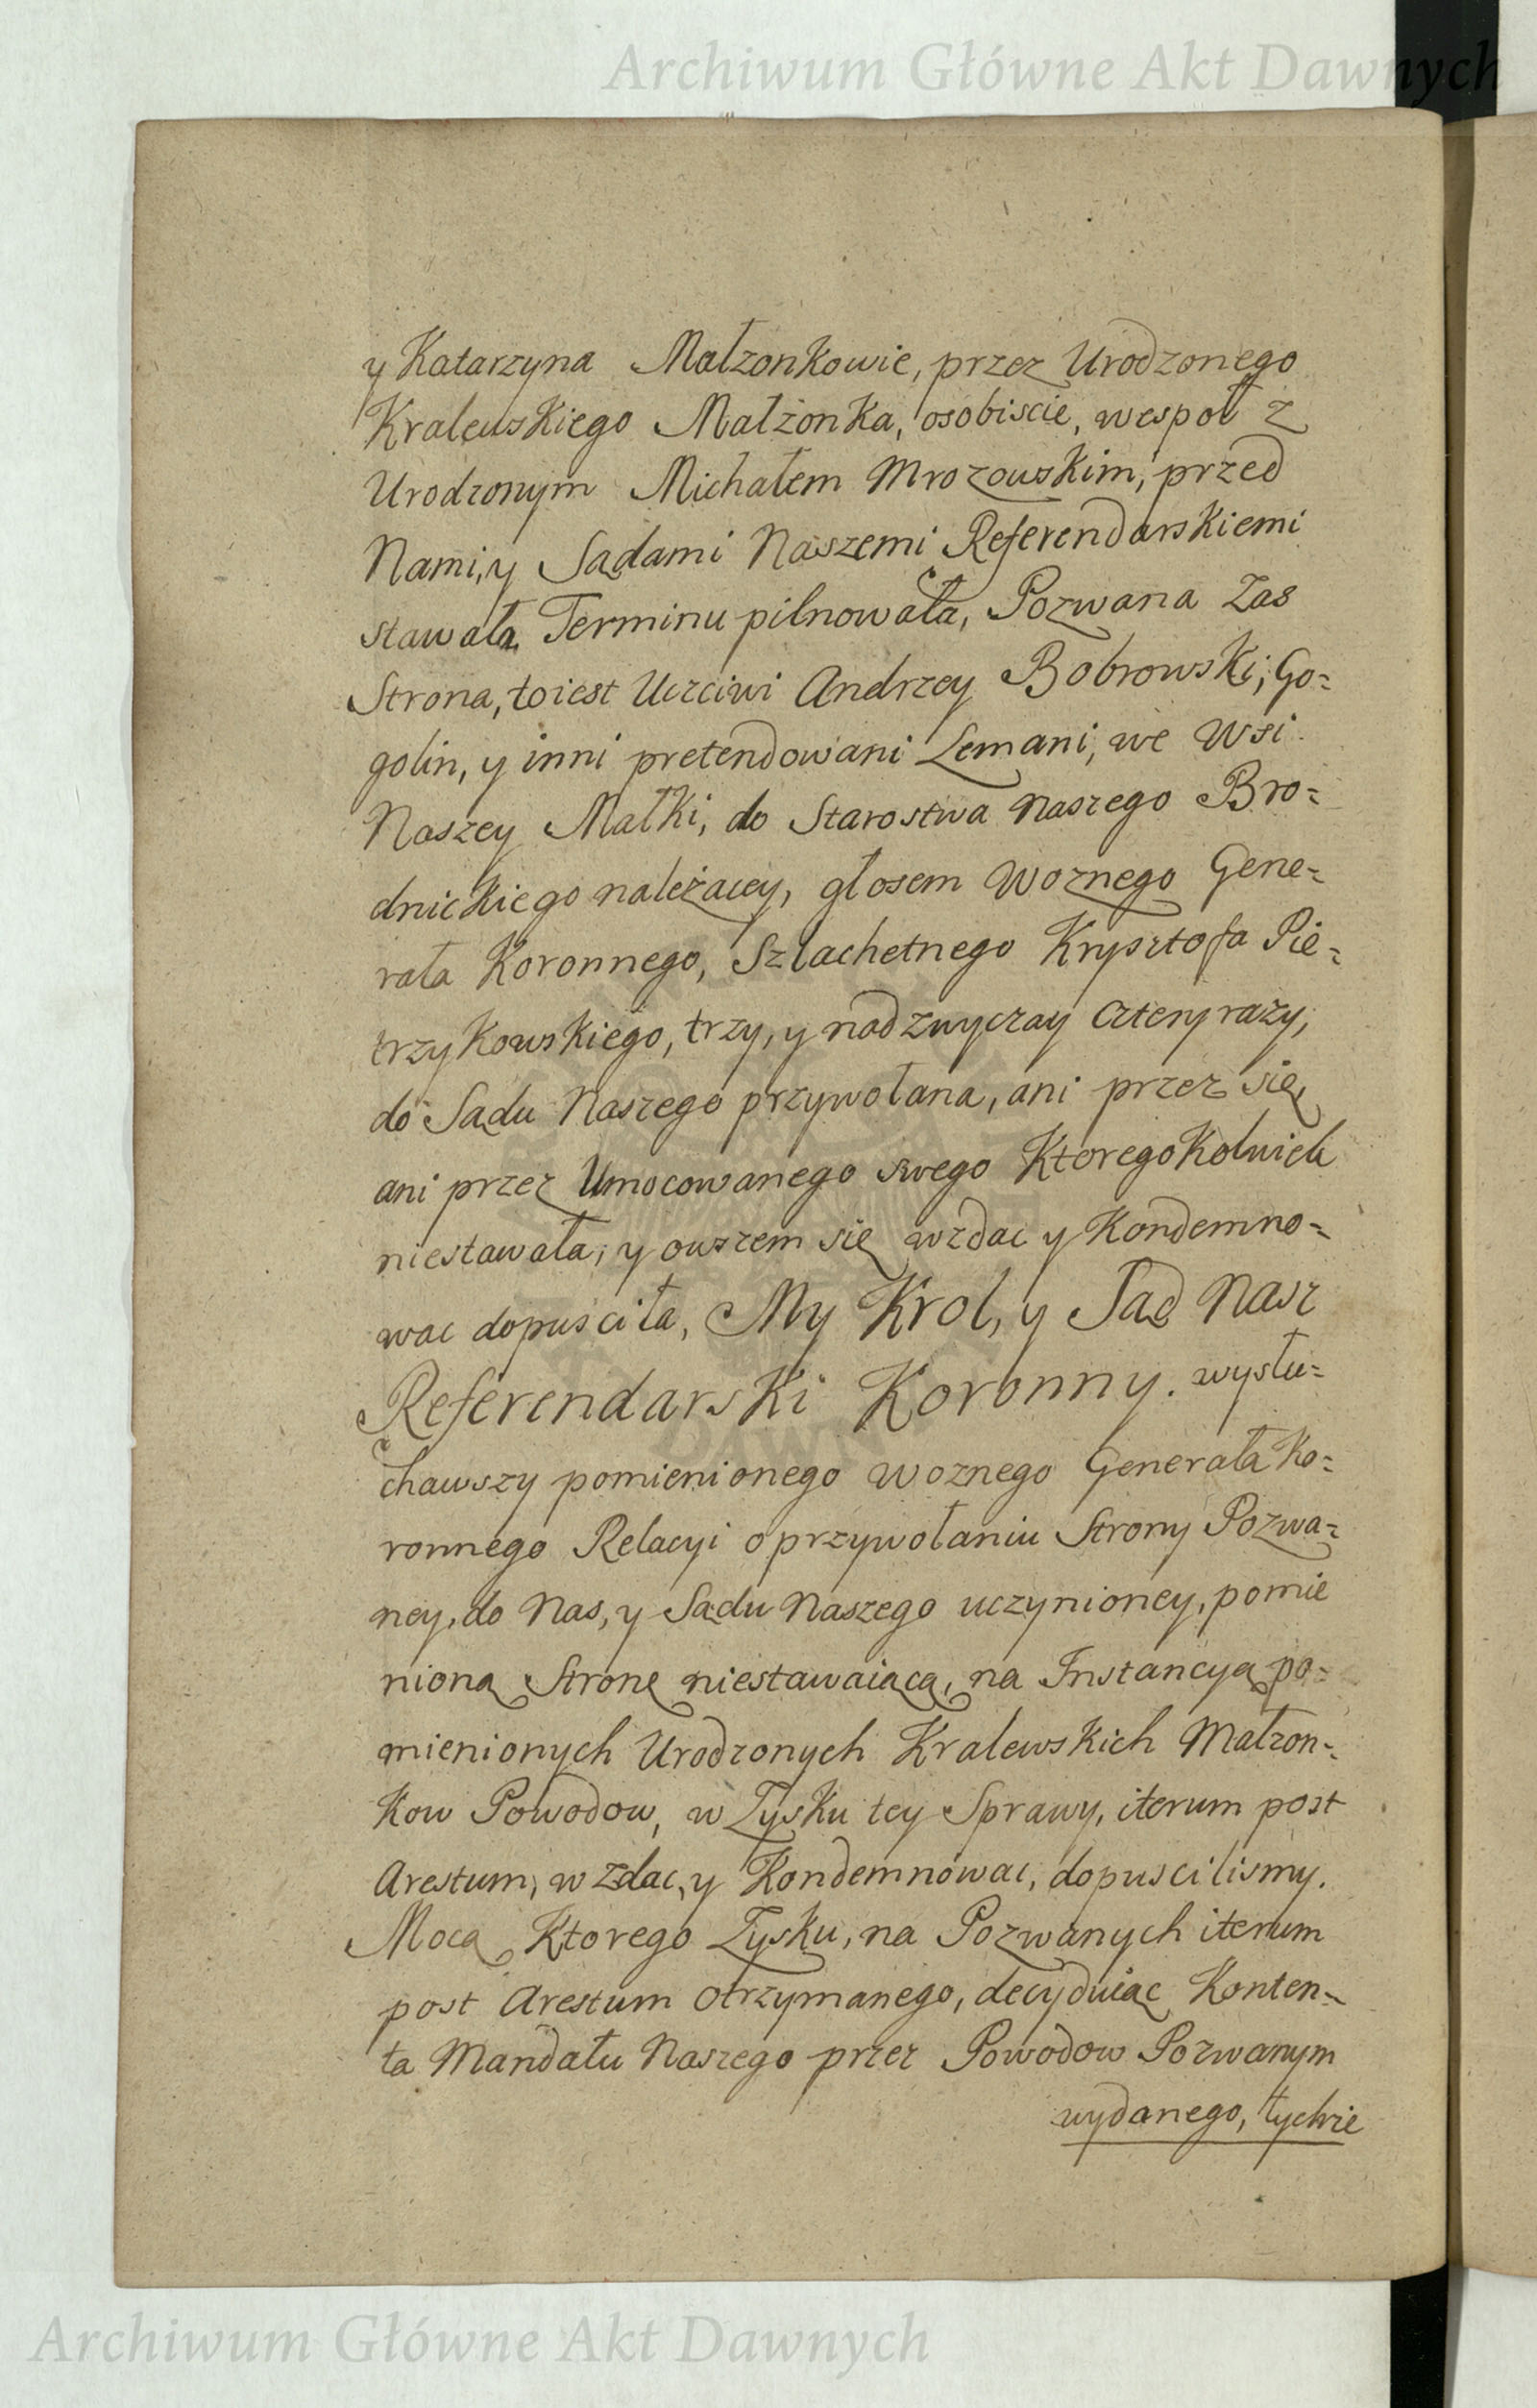 Archiwum Główne Akt Dawnych
y Katarzyna Małzonkowie, przez Urodzonego
Kralewskiego Małżonka, osobiscie, wespoł z
Urodzonym Michałem Mrozowskim, przed
Nami, y Sądami Naszemi Referendarskiemi
stawała, Terminu pilnowała, Pozwana zas
Strona, toiest Uczciwi Andrzey Bobrowski, Go=
golin, y inni pretendowani Lemani, we Wsi
Naszey Małki, do Starostwa naszego Bro=
dnickiego należącey, głosem Woznego Gene=
rała Koronnego, Szlachetnego Krysztofa Pie=
trzykowskiego, trzy, y nadzwyczay cztery razy,
do Sądu Naszego przywołana, ani przez się,
ani przez Umocowanego swego Ktoregokolwiek
niestawała, y owszem się wzdac y Kondemno=
wac dopusciła, My Krol, y Sąd Nasz
Referendarski Koronny. wysłu=
chawszy pomienionego Woznego Generała Ko=
ronnego Relacyi o przywołaniu Strony Pozwa=
ney, do Nas, y Sądu Naszego uczynioney, pomie
nioną Stronę niestawaiącą, na Instancyą po=
mienionych Urodzonych Kralewskich Małzon=
kow Powodow, w Zysku tey Sprawy, iterum post
Arestum, wzdac, y Kondemnowac, dopuscilismy.
Mocą Ktorego Zysku, na Pozwanych iterum
post Arestum otrzymanego, decyduiąc Konten=
ta Mandatu Naszego przez Powodow Pozwanym
wydanego, tychze
Archiwum Główne Akt Dawnych